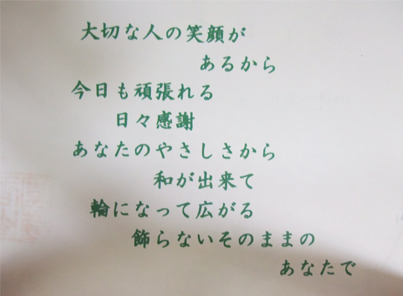 大切な人の笑顔が
あるから
今日も頑張れる
日々感謝
あなたのやさしさから
和が出来て
輪になって広がる
飾らないそのままの
あなたで